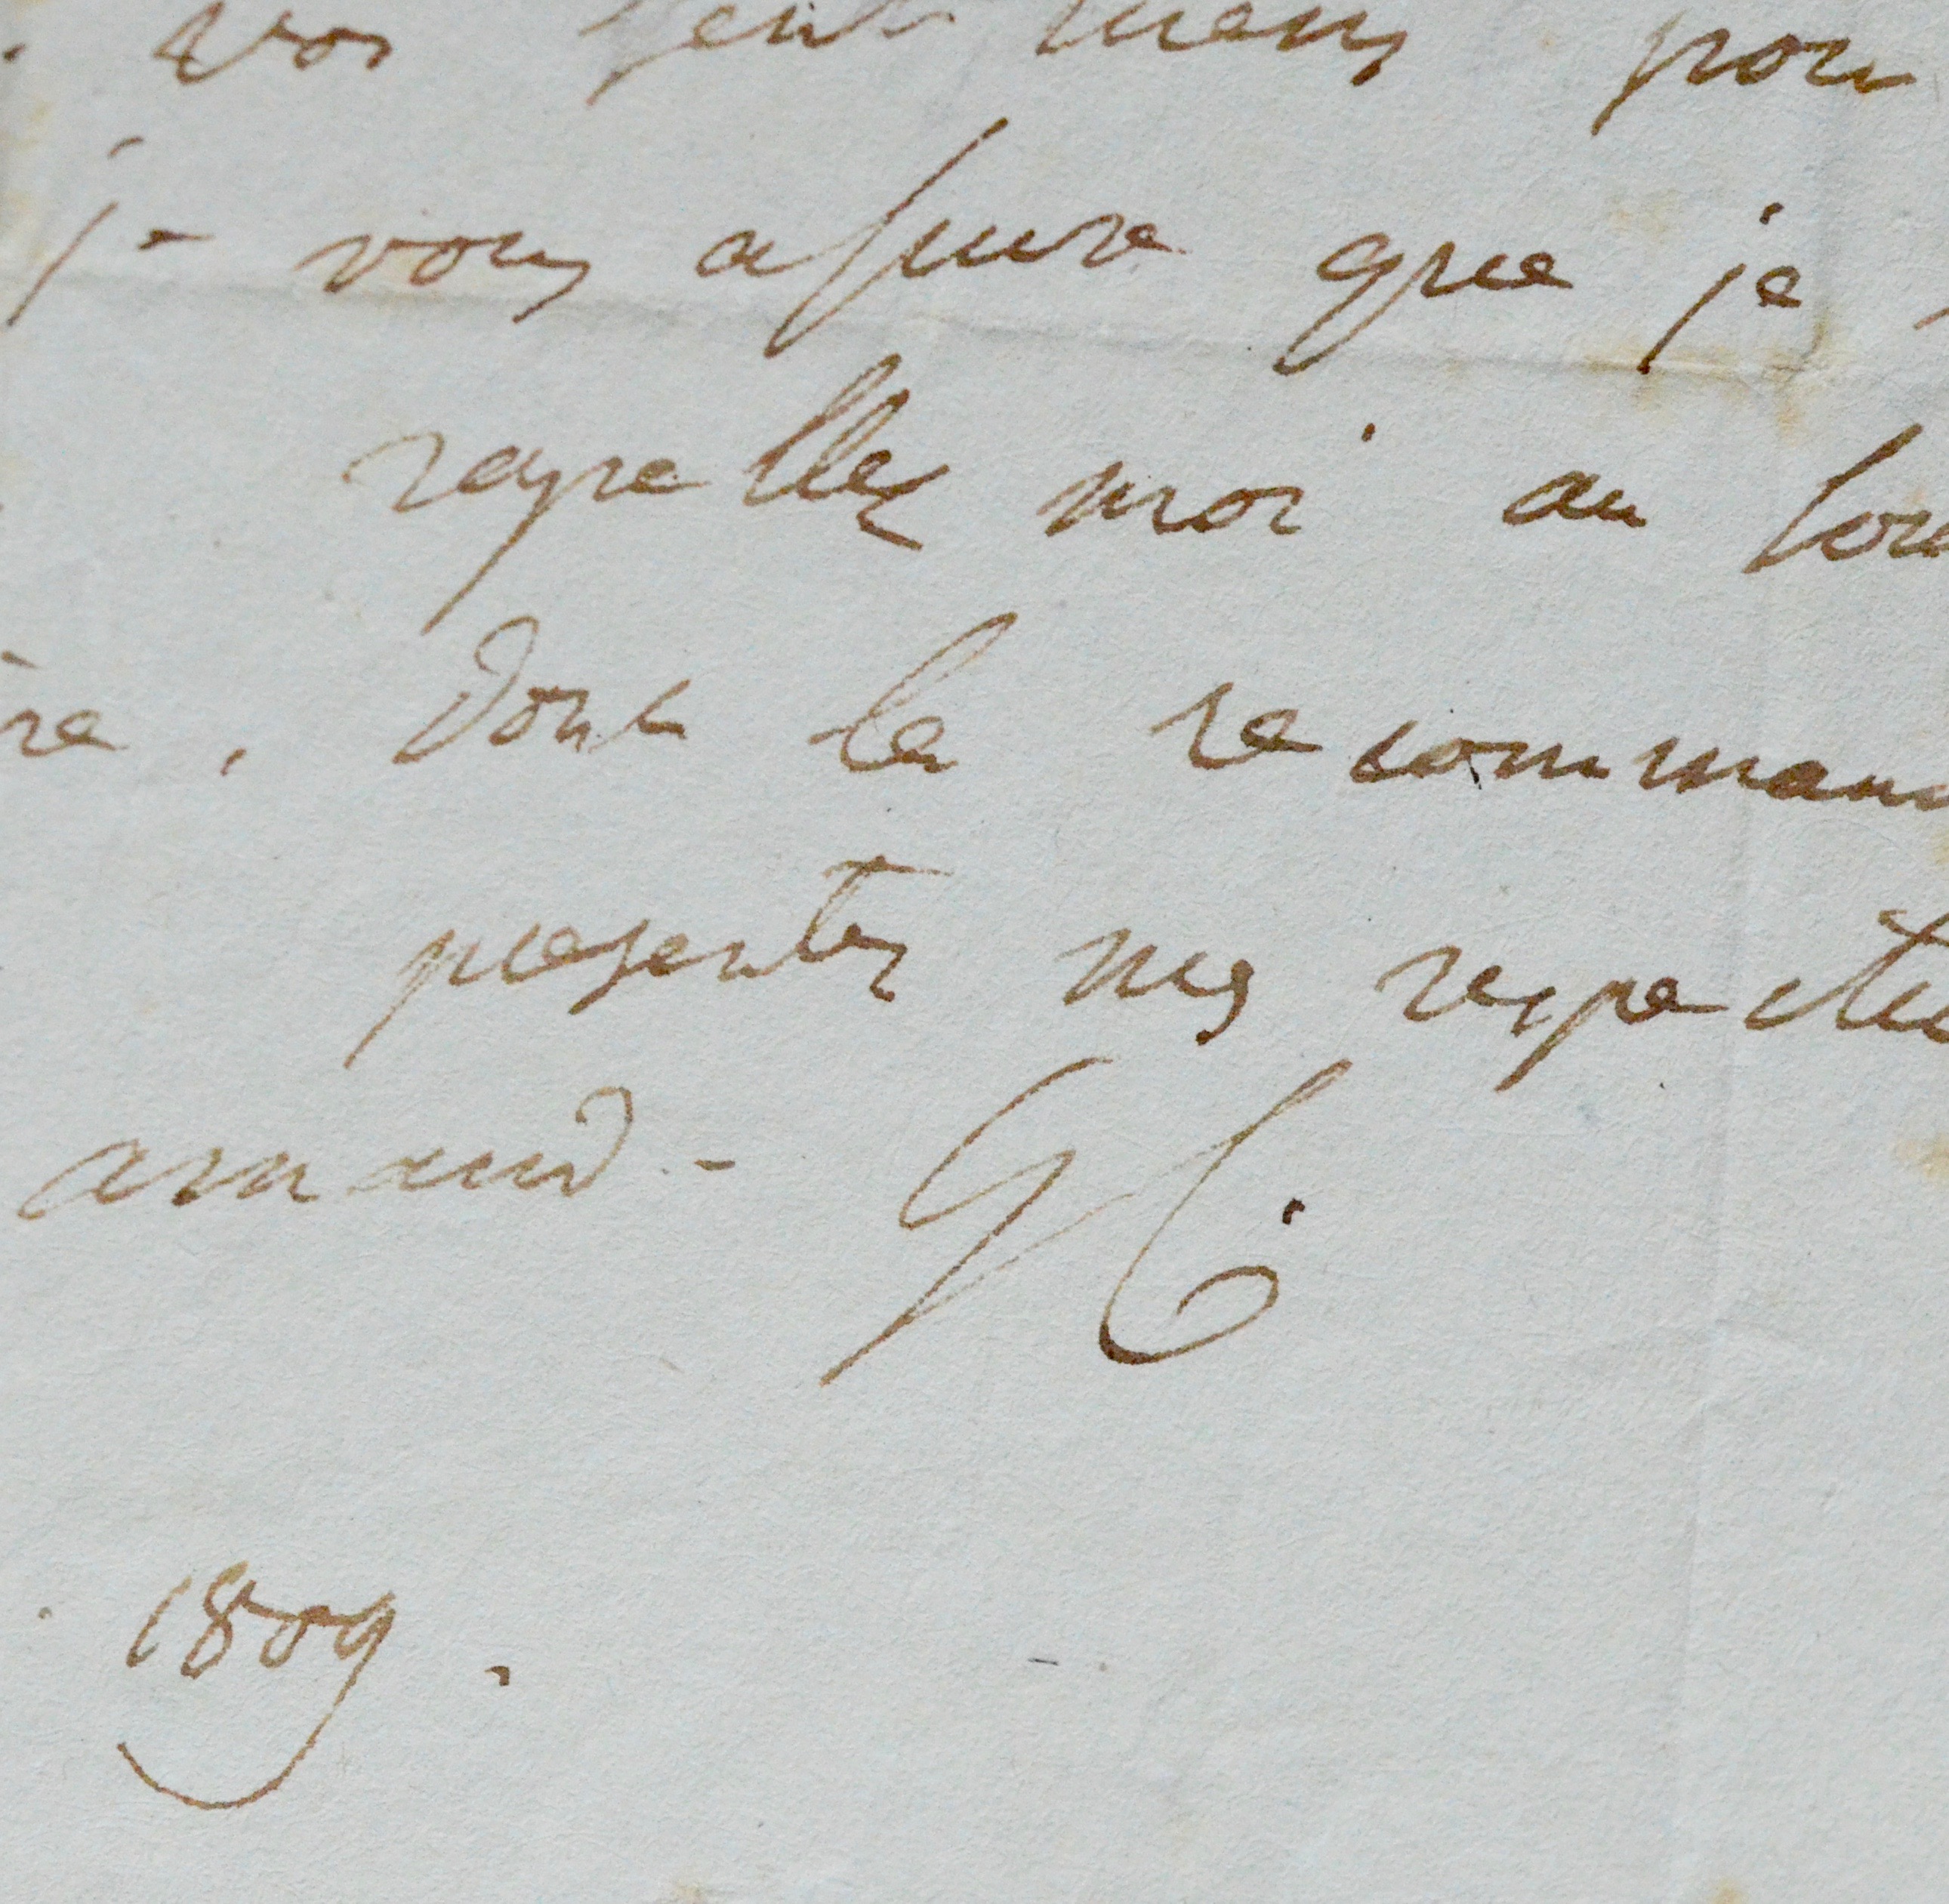 vos sentimens pour
je vous assure que je
rappellez moi au sou
re, dont la recomman
presentez mes respectu
arnaud -
1809.